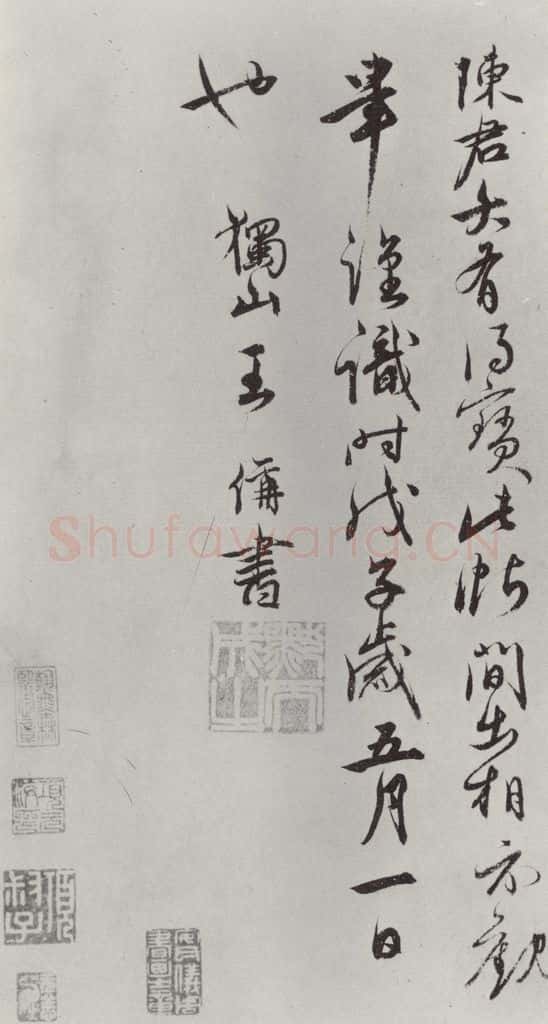 陳君大有得寶此帖間出相示觀
畢謹識時戊子歲五月一日
也 獨山王倩書
Shufawang.CN